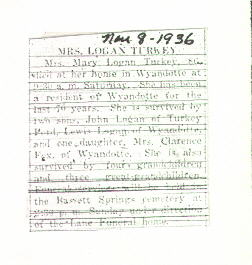 Nov 8-1936
MRS. LOGAN TURKEY
Mrs. Mary Logan Turkey,
died at her home in Wyandotte at
9:30 a. m. Saturday. She has been
a resident of Wyandotte for the
last years. She is survived by
two sons, John Logan of Turkey
Ford, Lewis Logan of Wyandotte,
and one daughter, Mrs. Clarence
Fox, of Wyandotte. She is also
survived by four grandchildren
and three great-grandchildren.
Funeral services will be held at
the Bassett Springs cemetery at
2:30 p. m. Sunday under direction
of the Lane Funeral home.